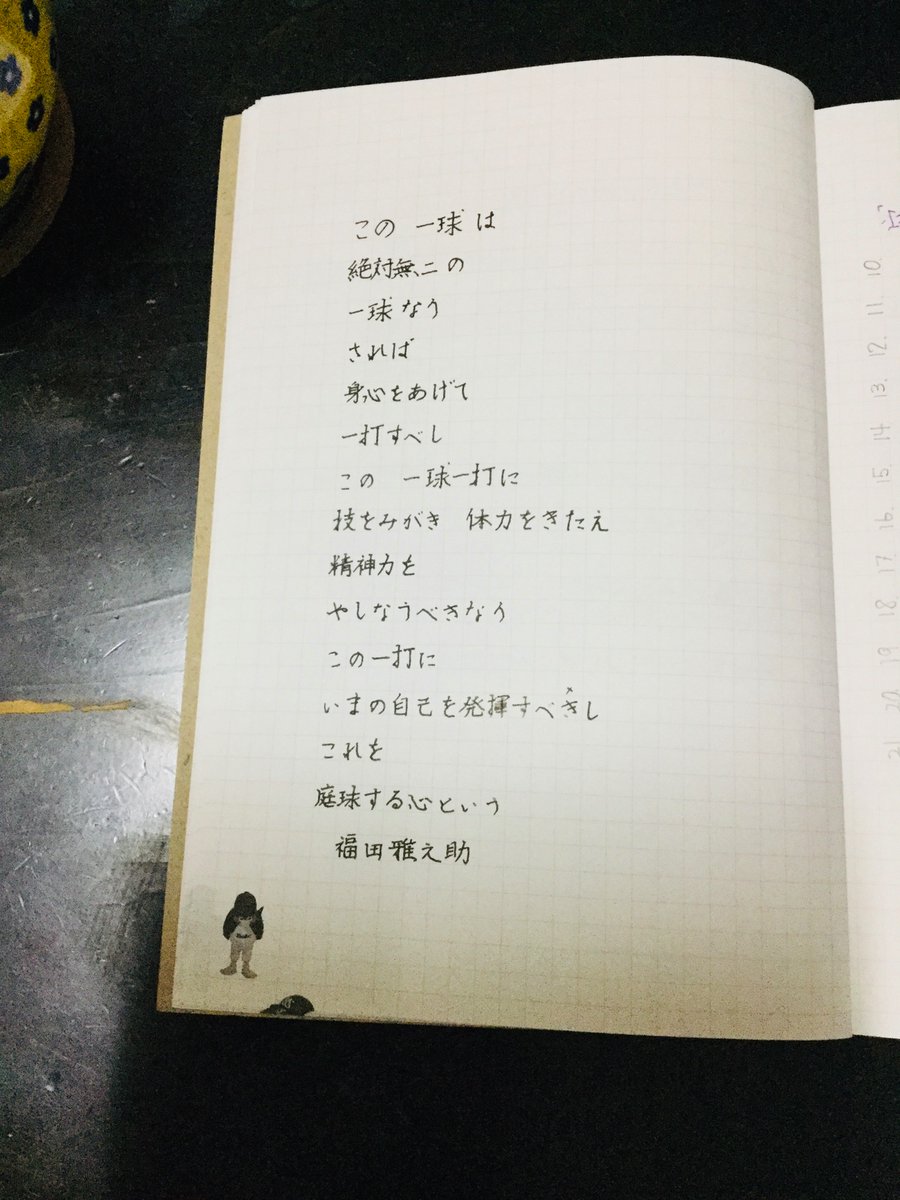 この 一球は
絶対無二の
一球なり
されば
身心をあげて
一打すべし
この 一球一打に
技をみがき 体力をきたえ
精神力を
やしなうべきなり
この一打に
いまの自己を発揮すべきし
これを
庭球する心という
福田雅之助
10.
11
12.
13.
14
15.
16.
17
18
19
20
21